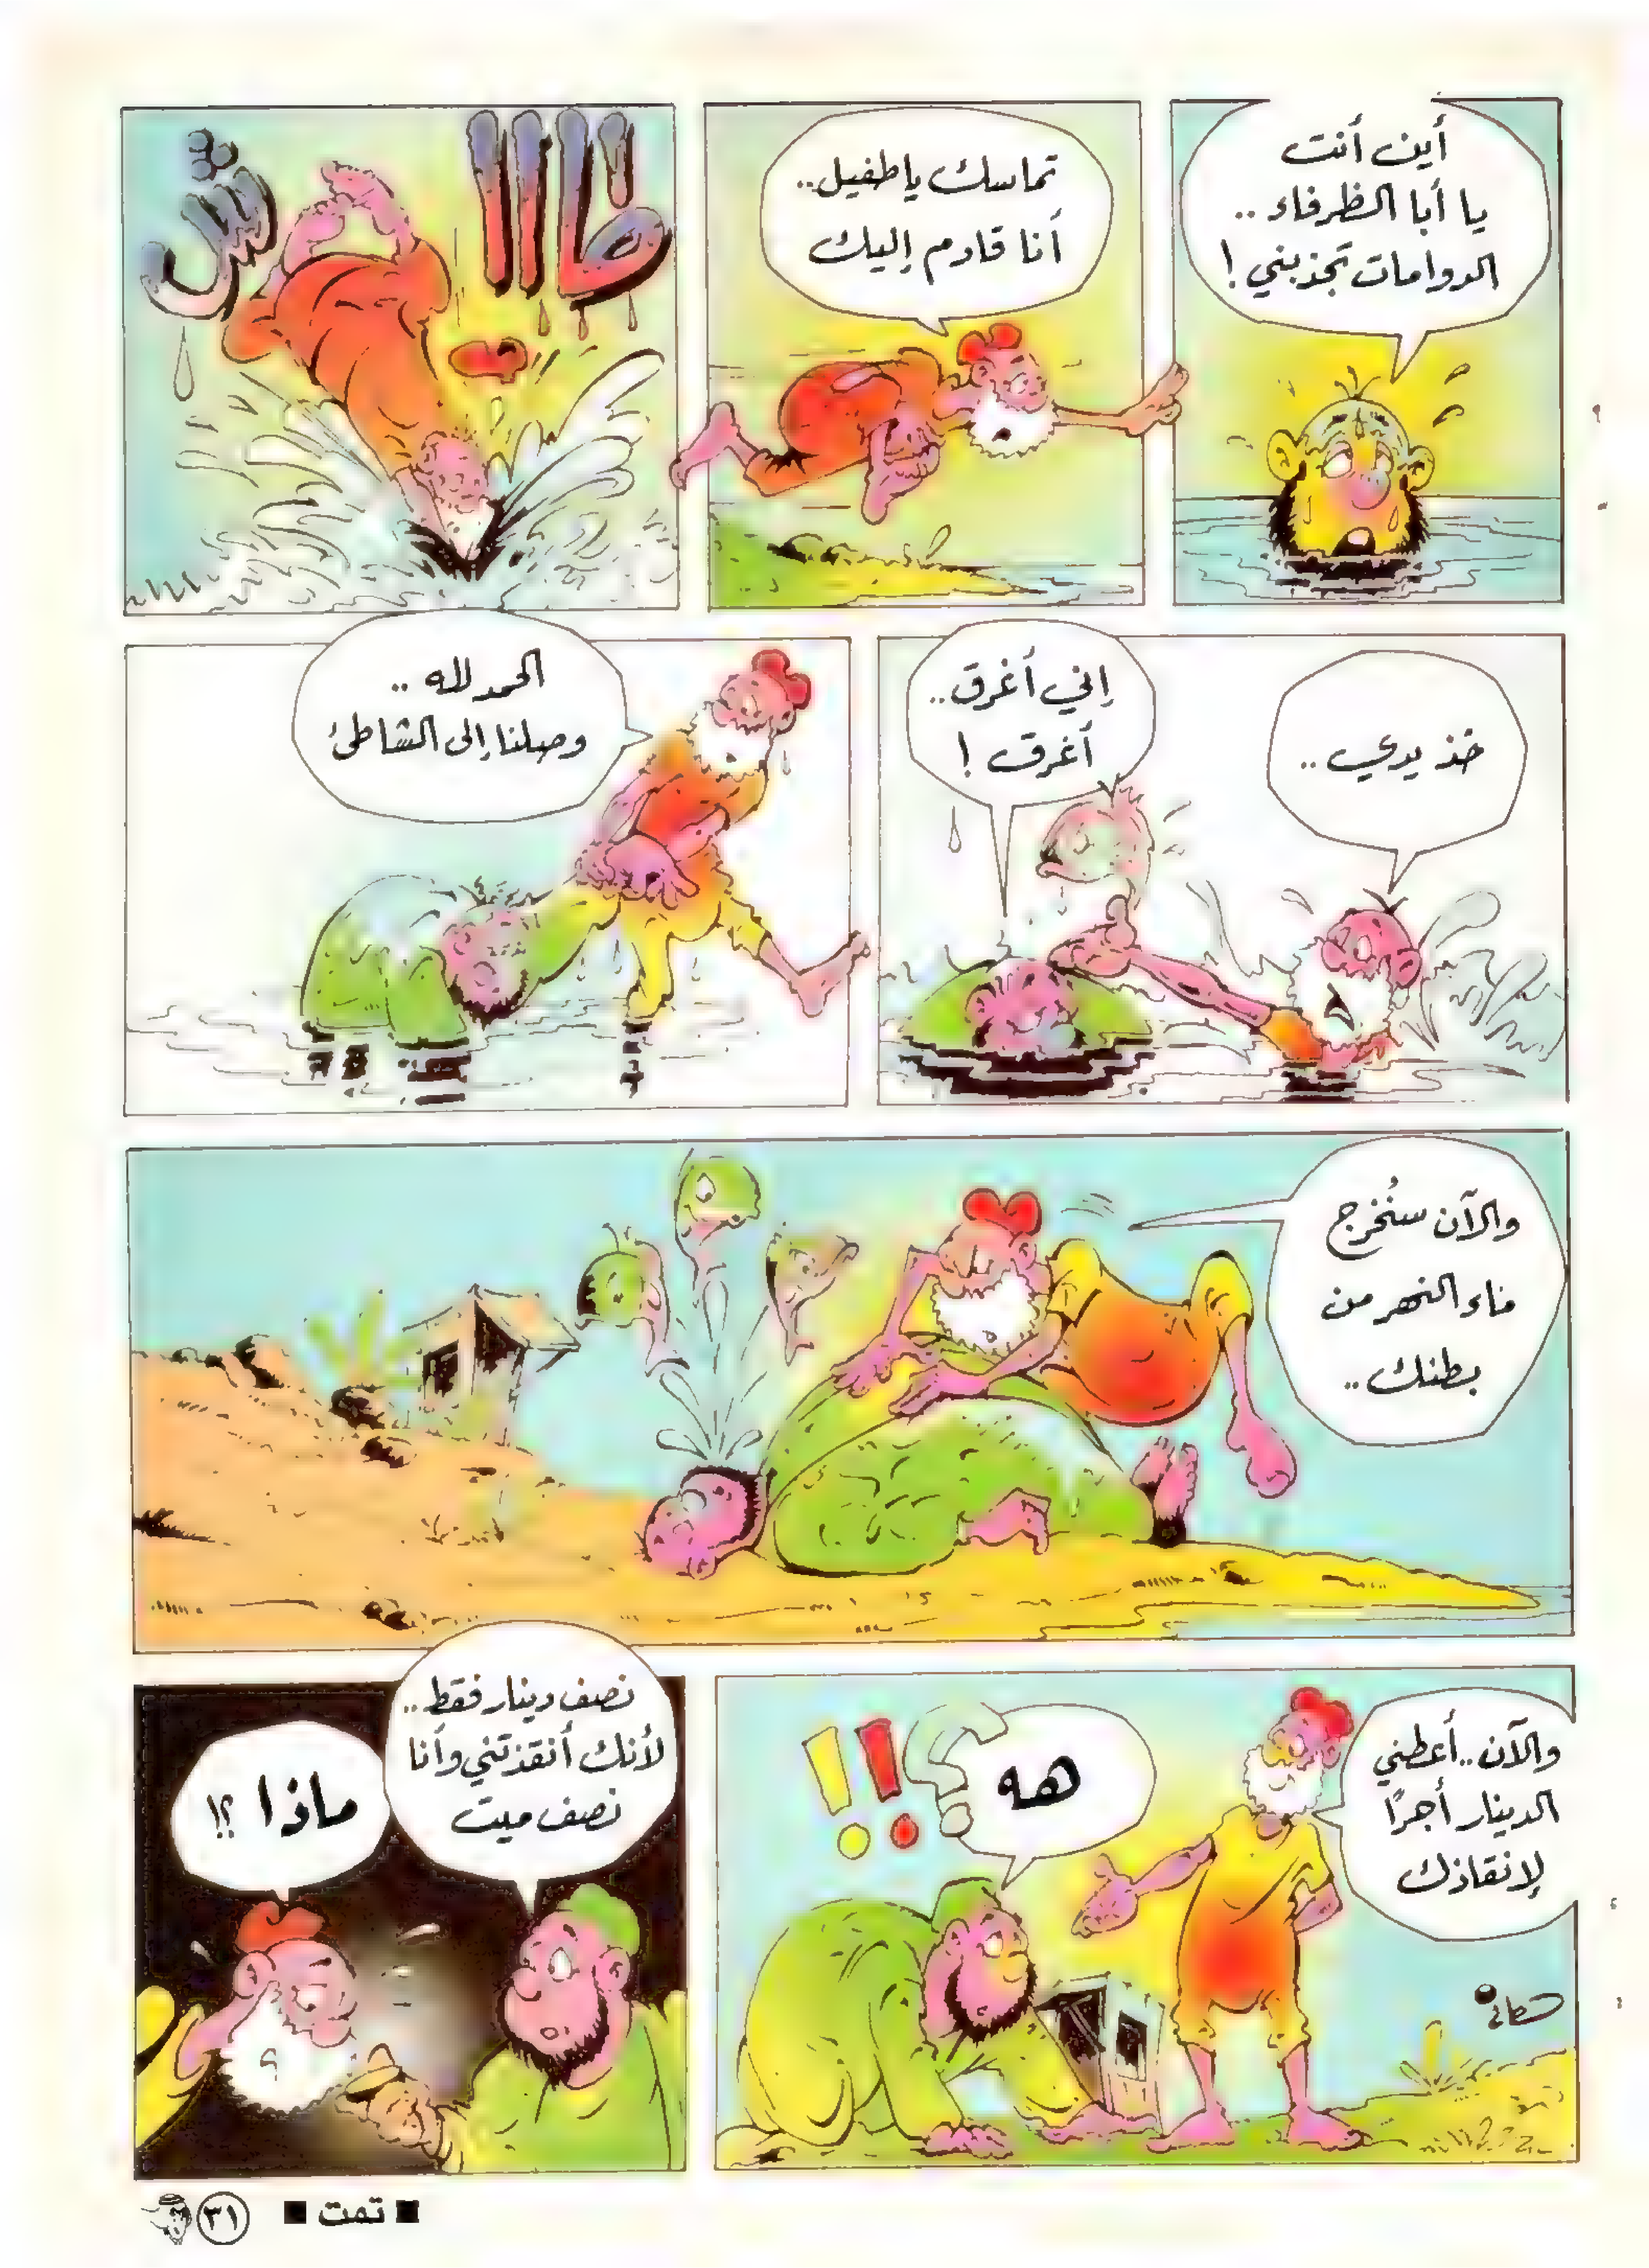 أين أنت
يا أبا الظرفاء ..
الدوامات تجذبني !
تماسك يا طفيل..
أنا قادم إليك
طاااش
خذ يدي ..
إني أغرق..
أغرق !
الحمد لله ..
وصلنا إلى الشاطئ
والآن سنُخرج
ماء النهر من
بطنك ..
والآن .. أعطني
الدينار أجرًا
لإنقاذك
هه
؟!!
نصف دينار فقط..
لأنك أنقذتني وأنا
نصف ميت
ماذا ؟!
■ تمت ■
٣١